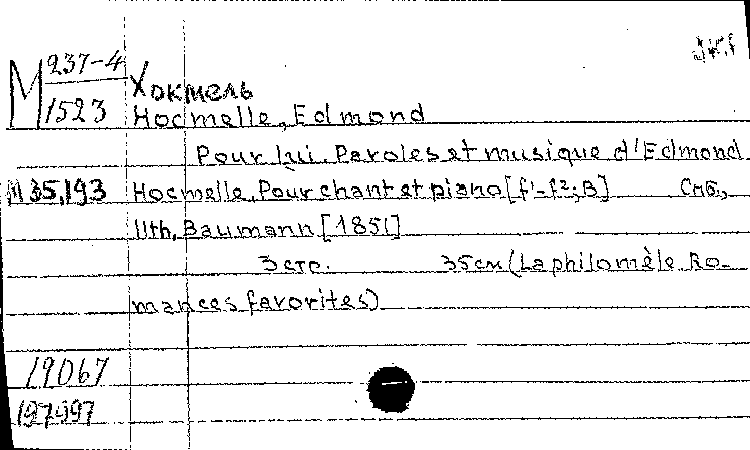 M 237-4
1523
Хокмель
Hocmelle, Edmond
Pour lui. Paroles et musique d'Edmond
M 35.193 Hocmelle. Pour chant et piano [f¹-f²; B] СПб.,
lith. Baumann [1851]
3 стр. 35 см (La philomèle. Ro-
mances favorites)
19067